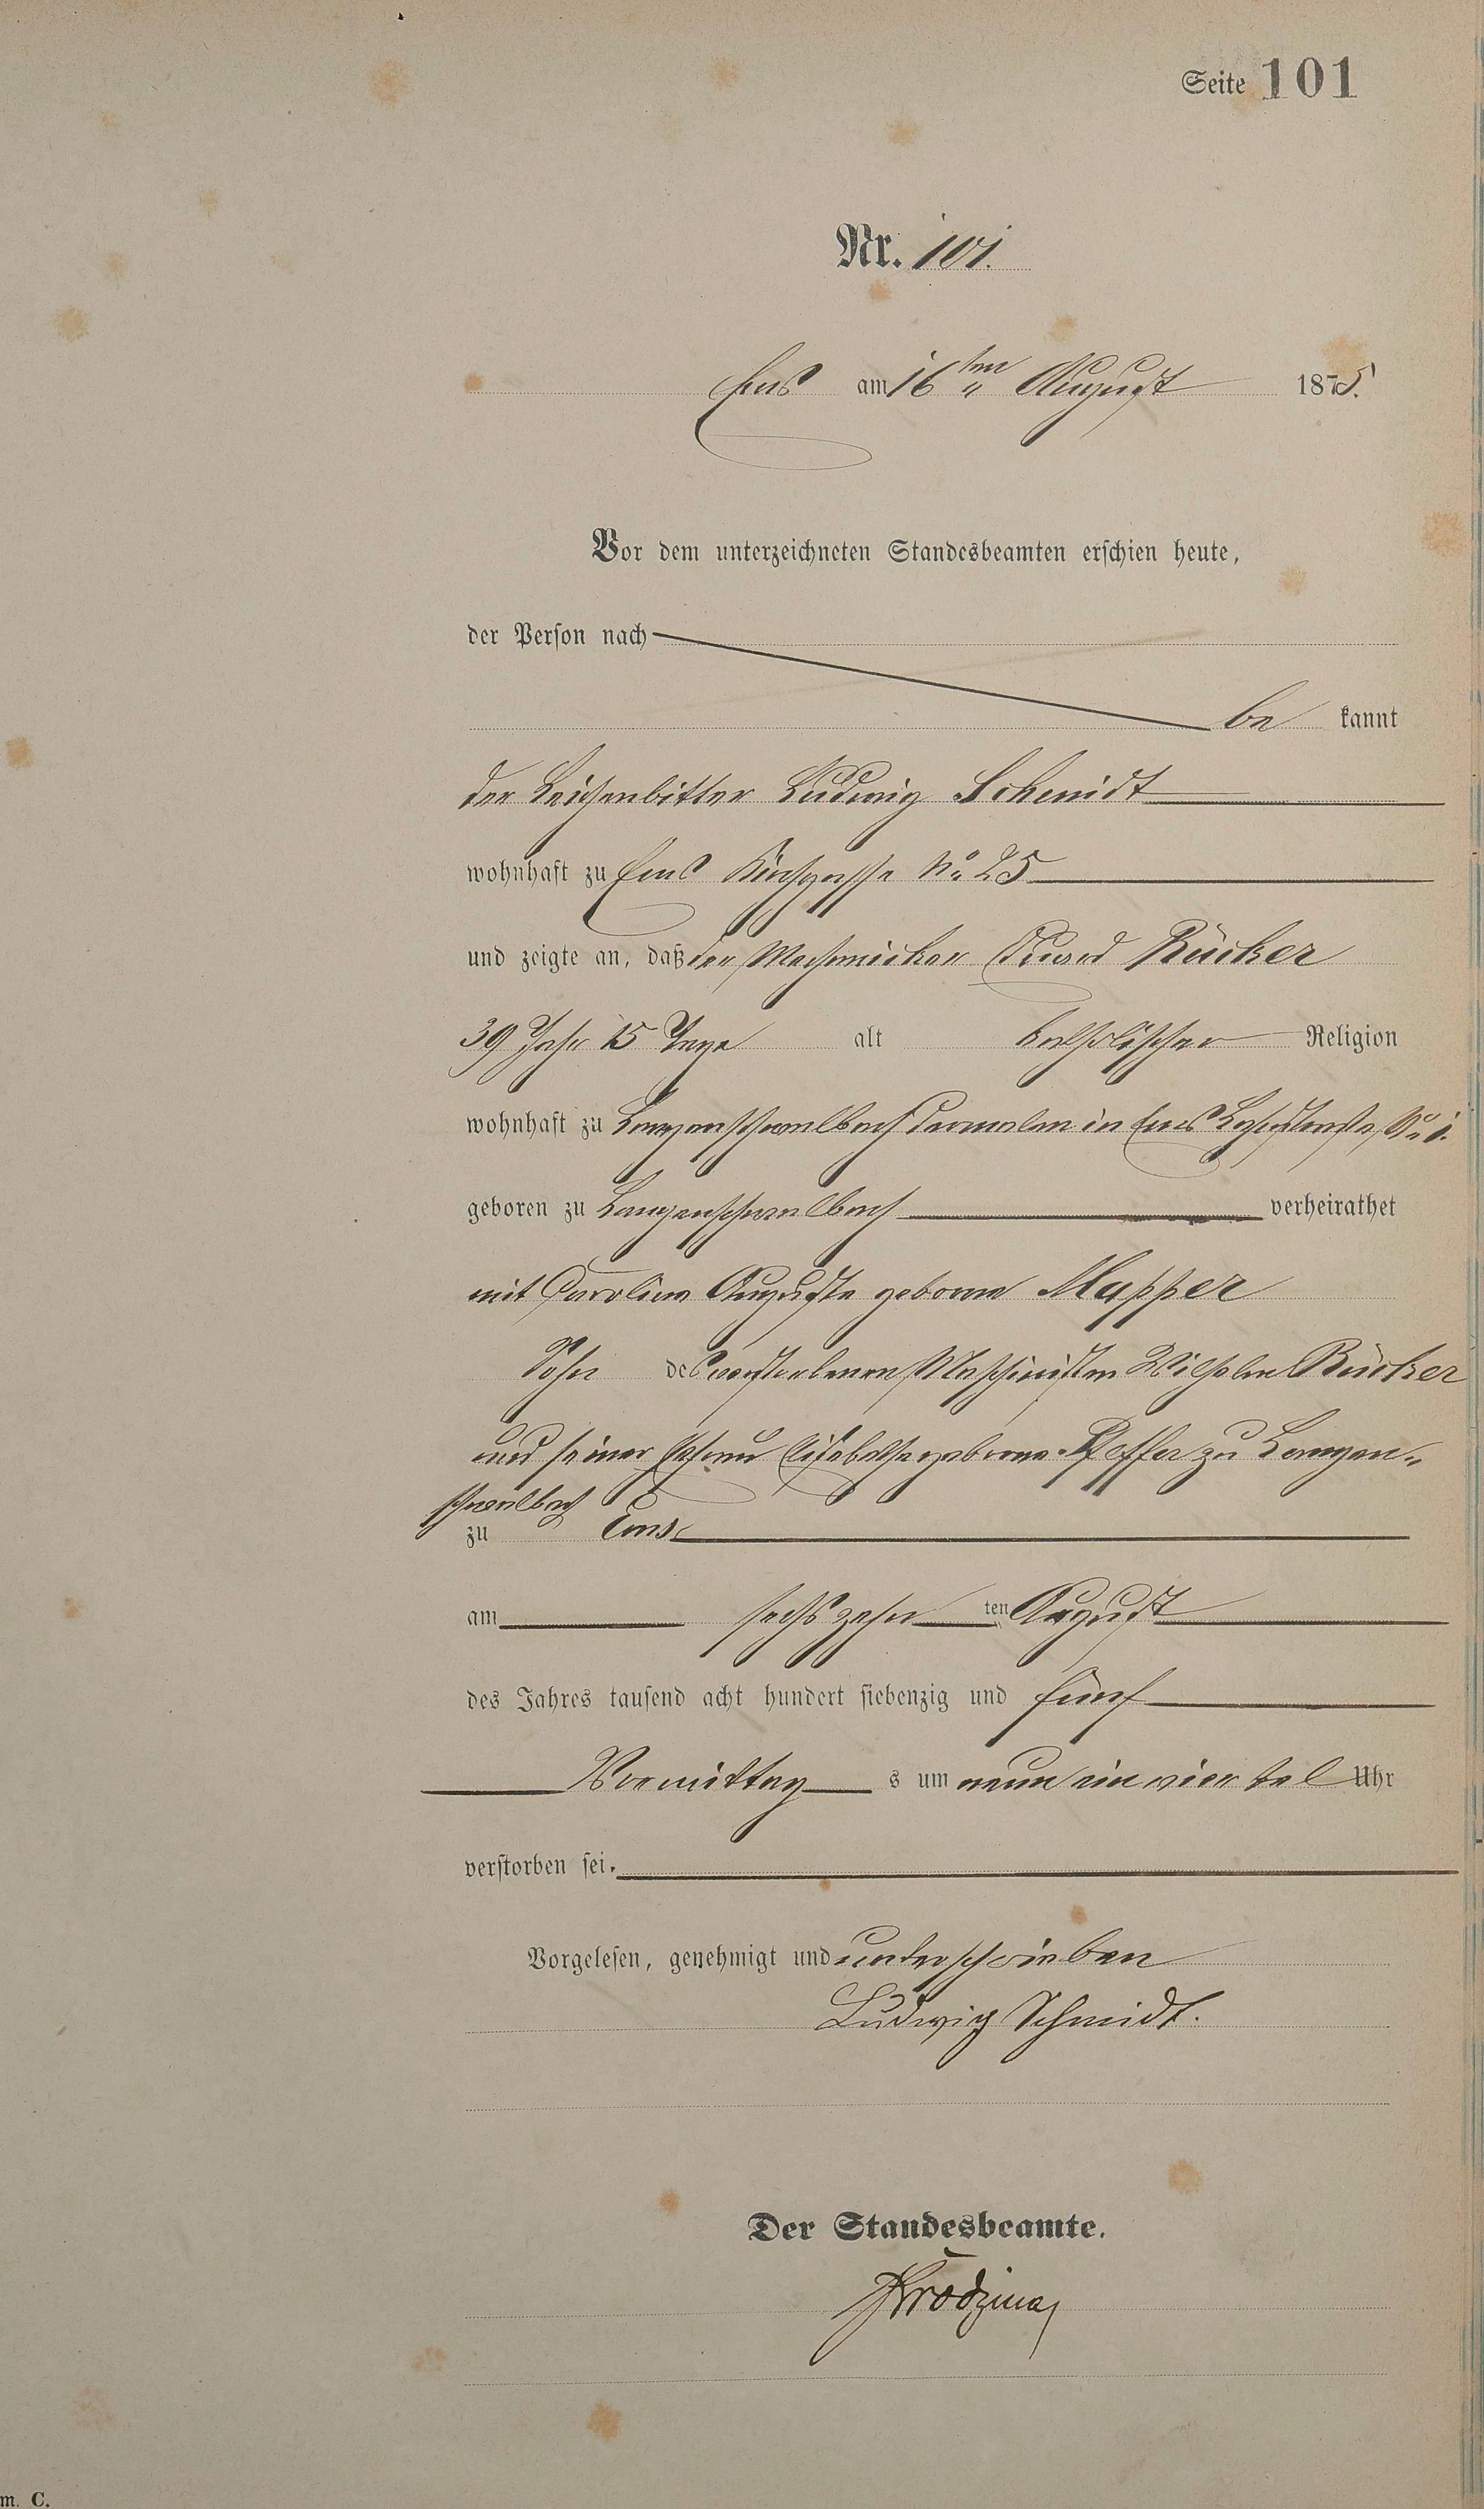 Seite 101
Nr. 101.
Ems am 16ten August 1875.
Vor dem unterzeichneten Standesbeamten erschien heute,
der Person nach
be kannt
der Leichenbitter Ludwig Schmidt
wohnhaft zu Ems Kirchgasse No 25
und zeigte an, daß der Mechanicker Eduard Rücker
39 Jahr 15 Tage alt katholischer Religion
wohnhaft zu Langenschwalbach dermalen in Ems No 1.
geboren zu Langenschwalbach verheirathet
mit Caroline Auguste geborne Mapper
Sohn des verstorbenen Maschinisten Wilhelm Rücker
und seiner Ehefrau Elisabethe geborne Pfeffer zu Langen-
schwalbach
zu Ems
am sechszehn ten August
des Jahres tausend acht hundert siebenzig und fünf
Vormittag s um neun ein viertel Uhr
verstorben sei.
Vorgelesen, genehmigt und unterschrieben
Ludwig Schmidt.
Der Standesbeamte.
m. C.